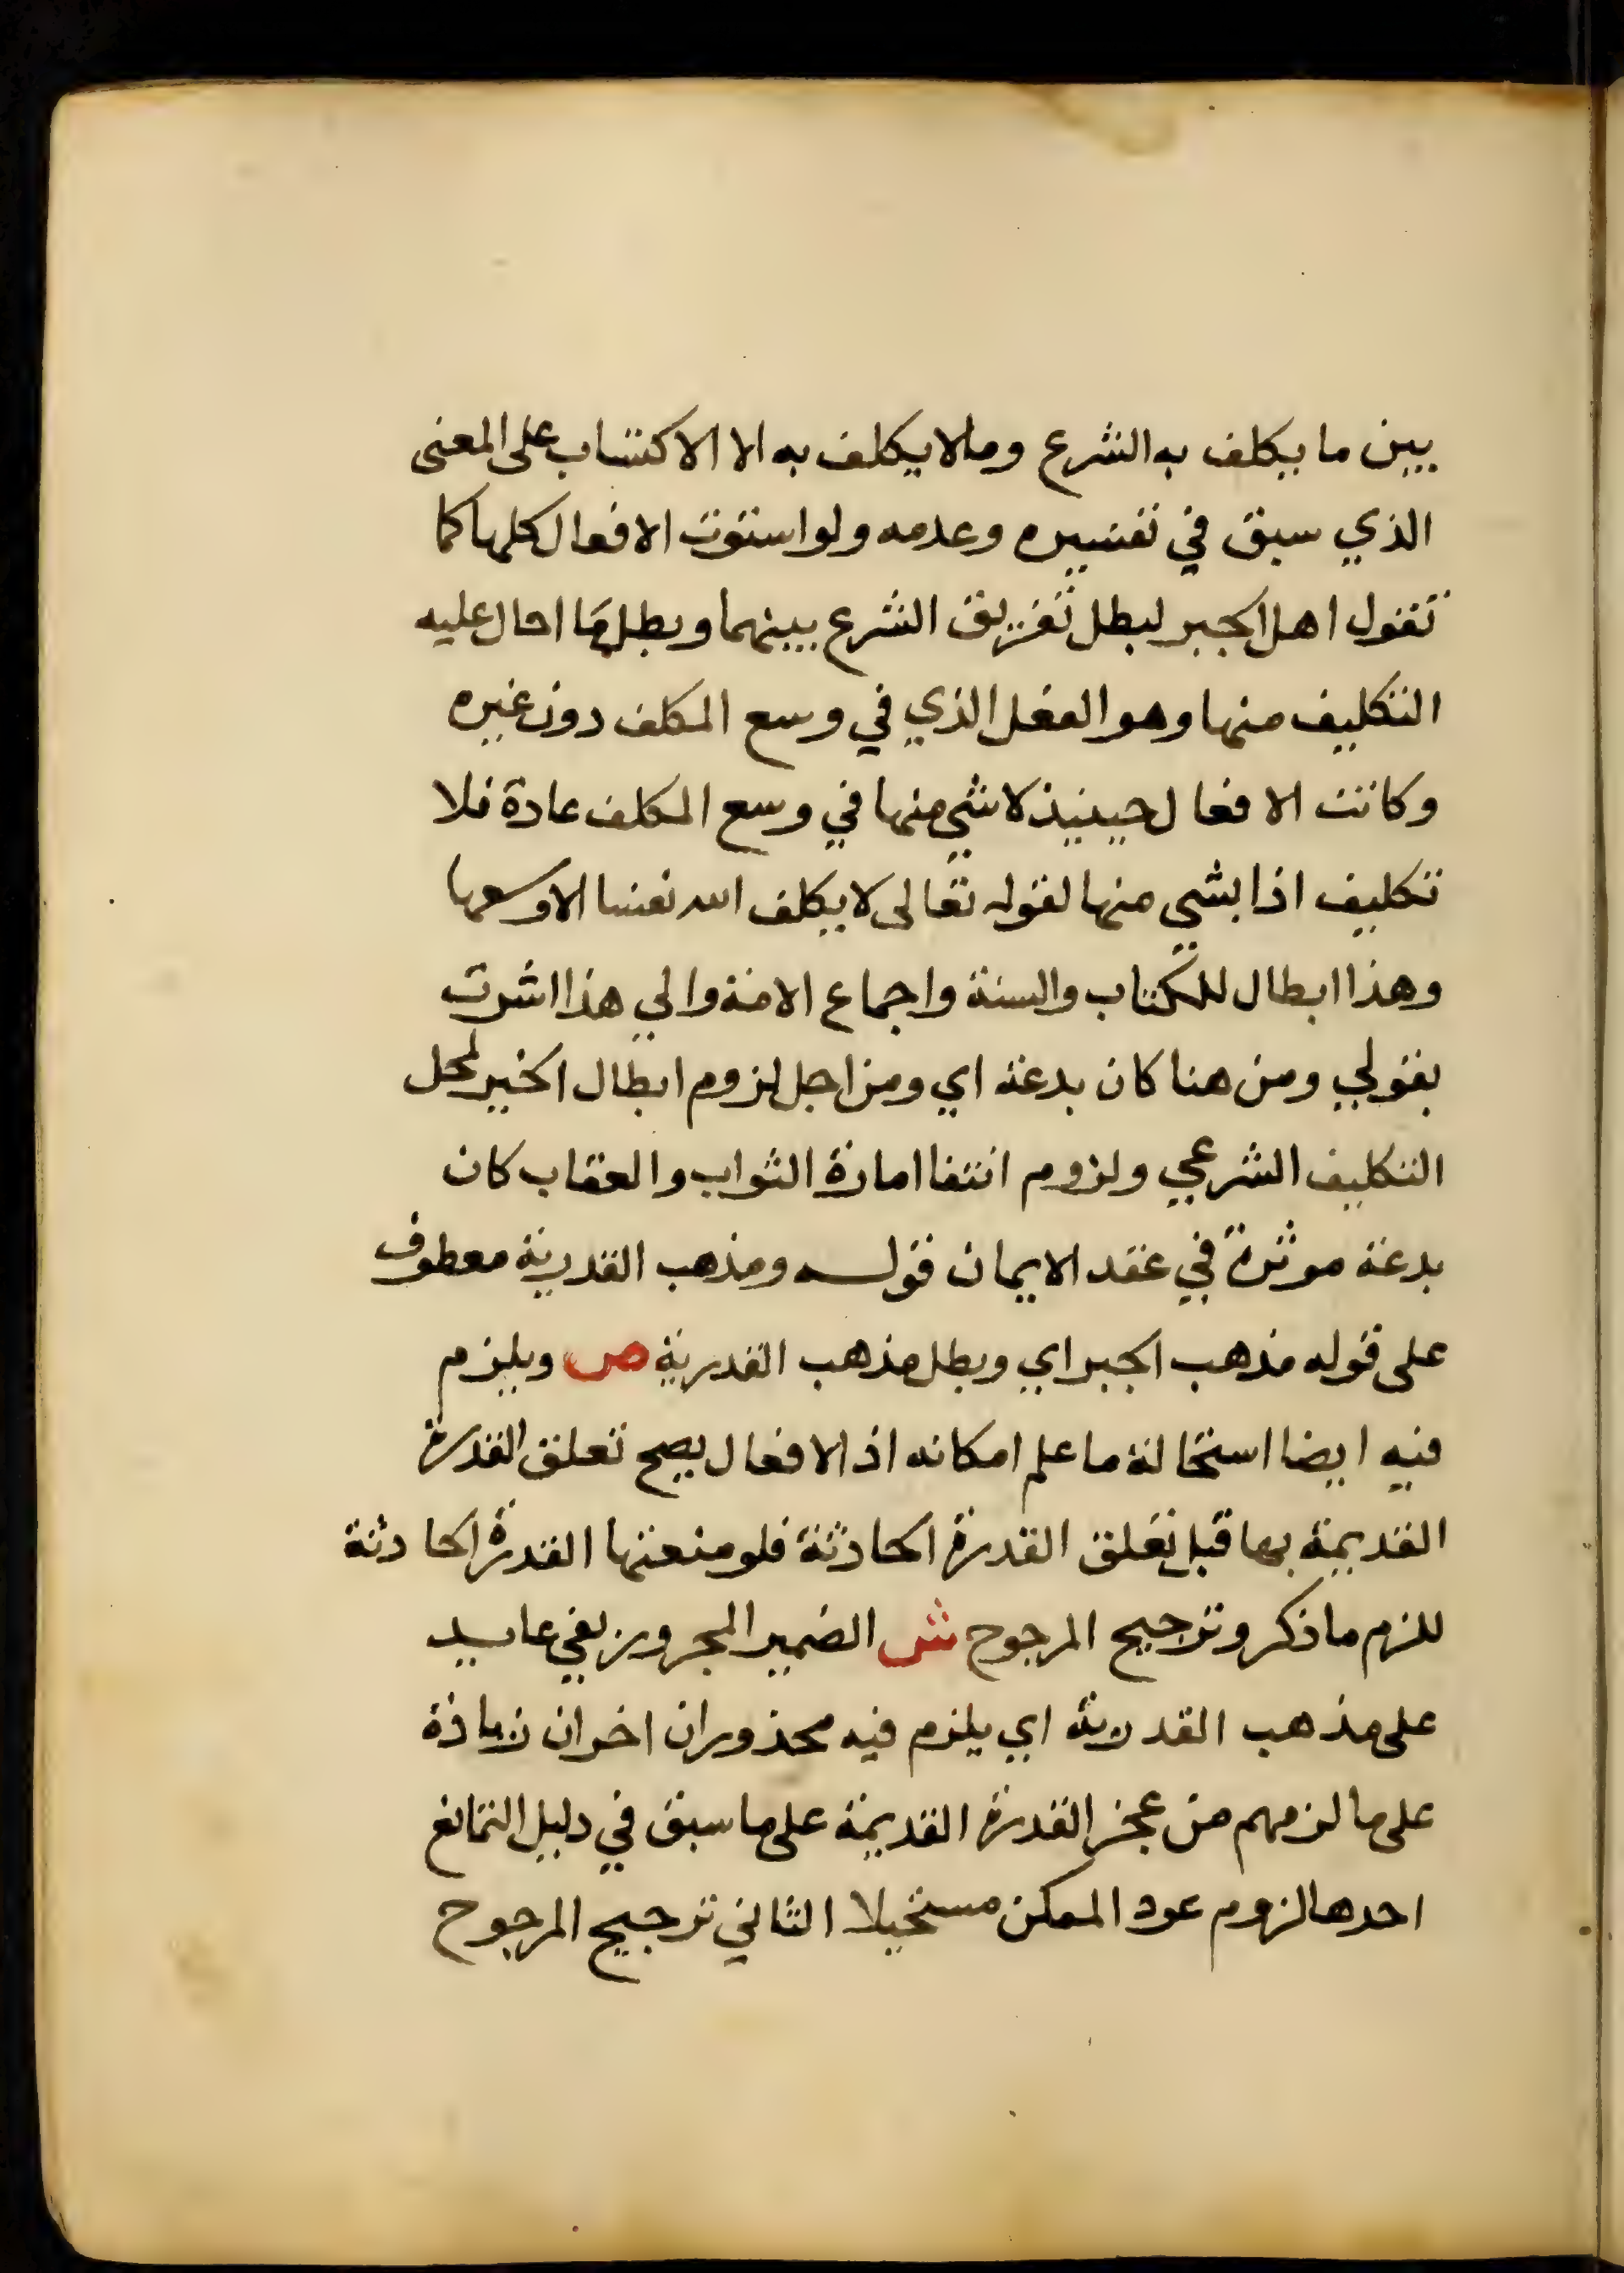 بين ما يكلف به الشرع وما لا يكلف به الا الاكتساب على المعنى
الذي سبق في تفسيره وعدمه ولو استوت الافعال كلها كما
تقول اهل الجبر لبطل تفريق الشرع بينهما وبطل ما احال عليه
التكليف منها وهو الفعل الذي في وسع المكلف دون غيره
وكانت الافعال حينيذ لا شي منها في وسع المكلف عادة فلا
تكليف اذا بشي منها لقوله تعالى لا يكلف الله نفسا الا وسعها
وهذا ابطال للكتاب والسنة واجماع الامة والي هذا اشرت
بقولي ومن هنا كان بدعة اي ومن اجل لزوم ابطال الخير لمحل
التكليف الشرعي ولزوم انتفا امارة الثواب والعقاب كان
بدعة موثرة في عقد الايمان قوله ومذهب القدرية معطوف
على قوله مذهب الجبر اي وبطل مذهب القدرية ص ويلزم
فيه ايضا استحالة ما علم امكانه اذ الافعال يصح تعلق القدرة
القديمة بها قبل تعلق القدرة الحادثة فلو منعتها القدرة الحادثة
للزم ما ذكر وترجيح المرجوح ش الضمير المجرور بفي عايد
على مذهب القدرية اي يلزم فيه محذوران اخران زيادة
على ما لزمهم من عجز القدرة القديمة على ما سبق في دليل التمانع
احدها لزوم عود الممكن مستحيلا الثاني ترجيح المرجوح